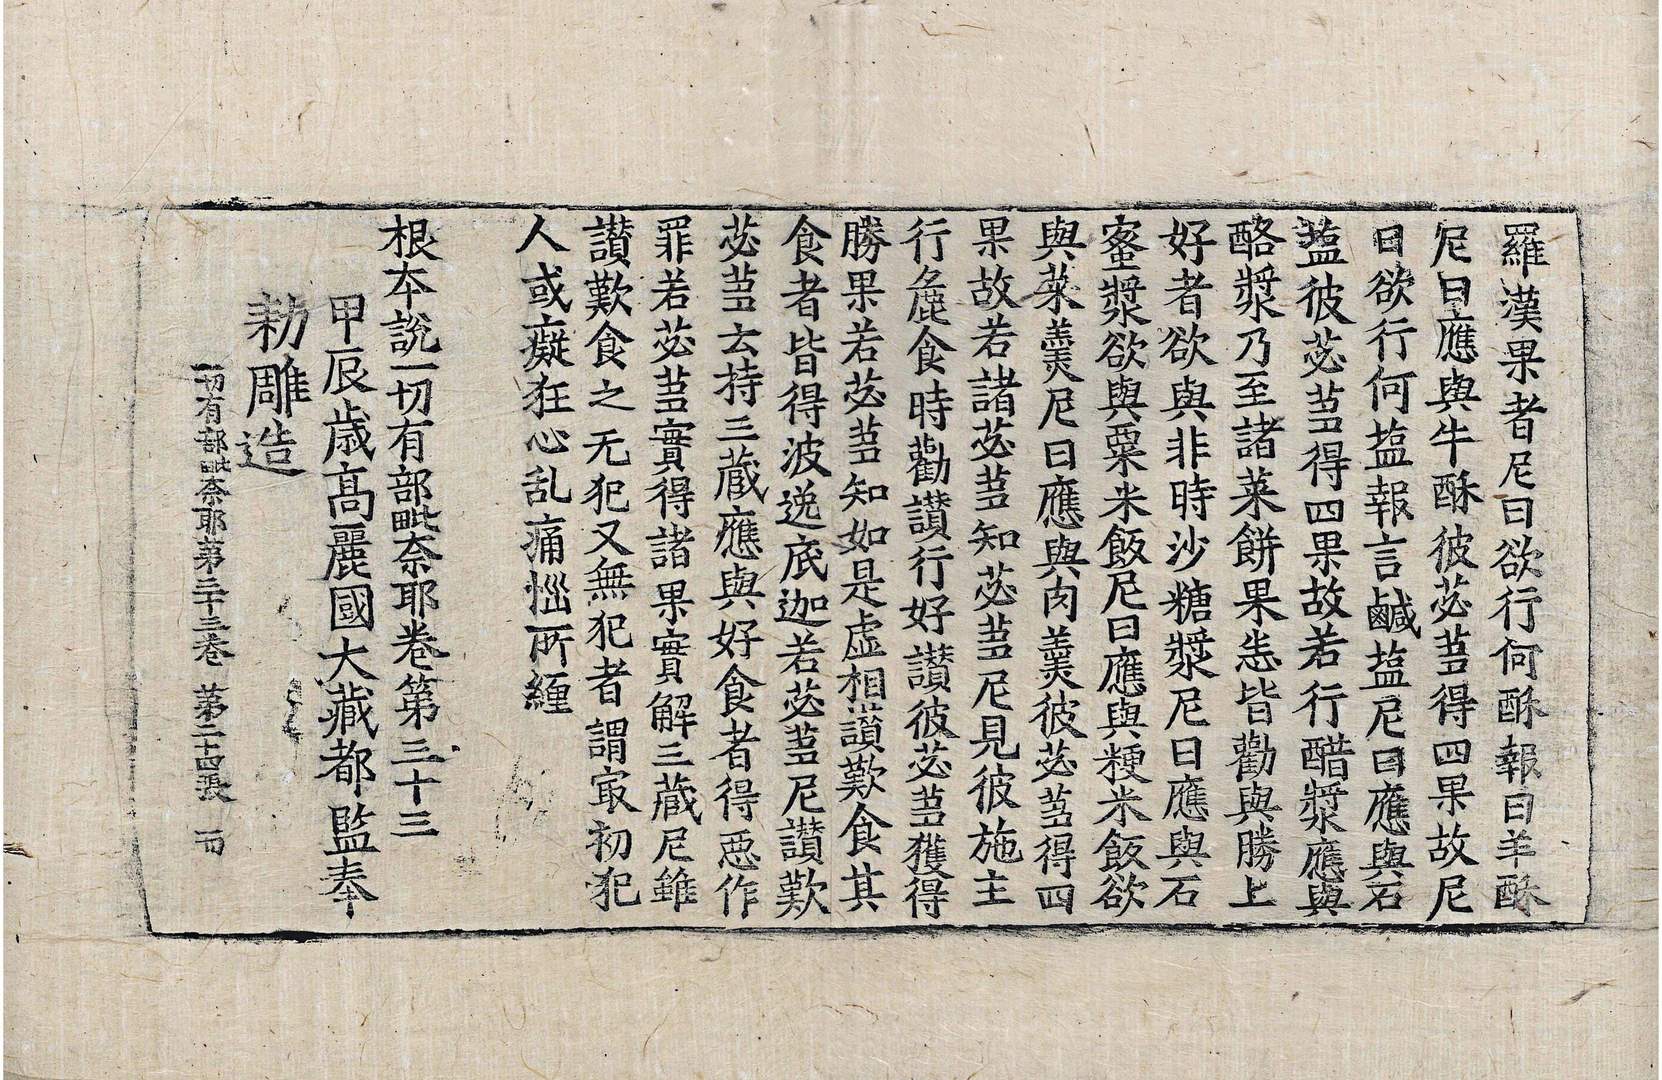 羅漢果者尼曰欲行何酥報曰羊酥
尼曰應與牛酥彼苾蒭得四果故尼
曰欲行何塩報言鹹塩尼曰應與石
塩彼苾蒭得四果故若行醋漿應與
酪漿乃至諸菜餅果恙皆勸與勝上
好者欲與非時沙糖漿尼曰應與石
蜜漿欲與粟米飯尼曰應與粳米飯欲
與菜羹尼曰應與肉羹彼苾蒭得四
果故若諸苾蒭知苾蒭尼見彼施主
行麁食時勸讃行好讃彼苾蒭獲得
勝果若苾蒭知如是虛相讃歎食其
食者皆得波逸底迦若苾蒭尼讃歎
苾蒭云持三藏應與好食者得惡作
罪若苾蒭實得諸果實解三藏尼雖
讃歎食之无犯又無犯者謂㝡初犯
人或癡狂心乱痛惱所纏
根本說一切有部毗奈耶卷第三十三
甲辰歲高麗國大藏都監奉
勑雕造
一切有部毗奈耶第三十三卷 第二十四張 而